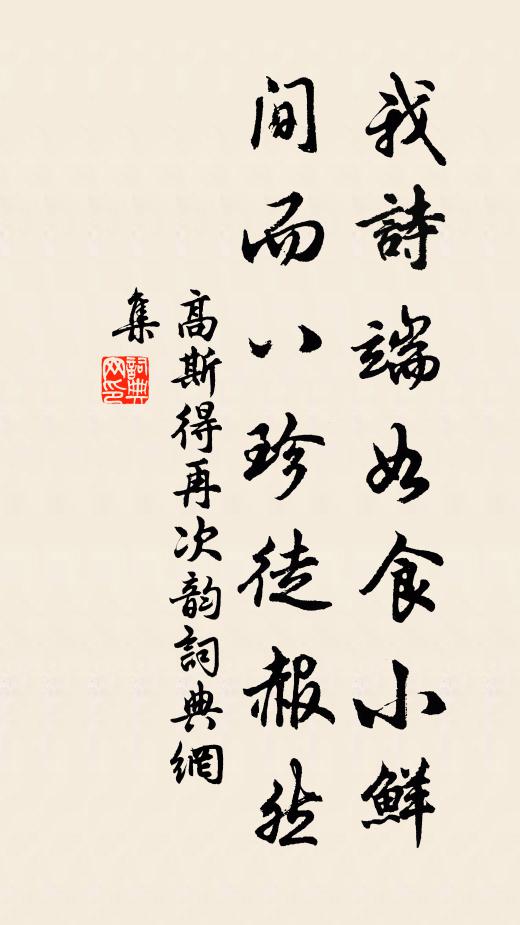 我詩端如食小鮮
间而八珍徒赧然
高斯得再次韵詞典網
集
詞典
网印